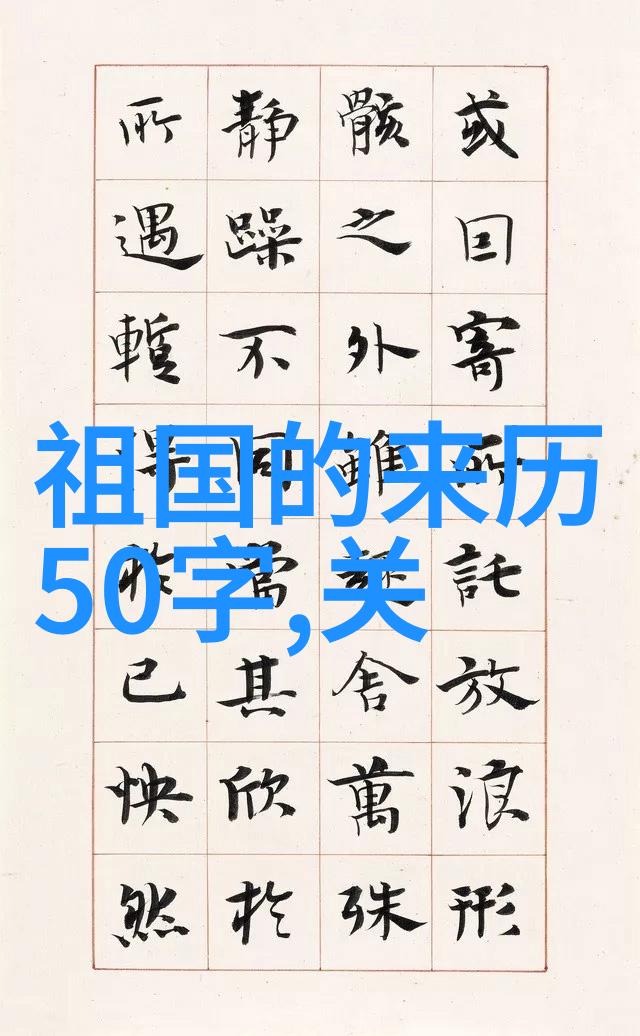 祖国的来历
50字,关
或囙寄所託放浪形
骸之外雖趣舍萬殊
靜躁不同當其欣於
所遇暫得於己怏然